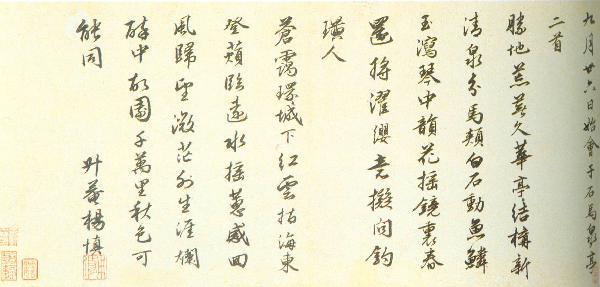 九月廿六日始會于石馬泉亭
二首
勝地荒蕪久華亭結構新
清泉分馬頰白石動魚鱗
玉瀉琴中韻花摇鏡裏春
還將濯纓意擬問釣
璜人
蒼靄環城下紅雲指海東
登蘋臨遠水摇蕙感回
風歸望微茫外生涯爛
醉中故園千萬里秋色可
能同
升菴楊慎